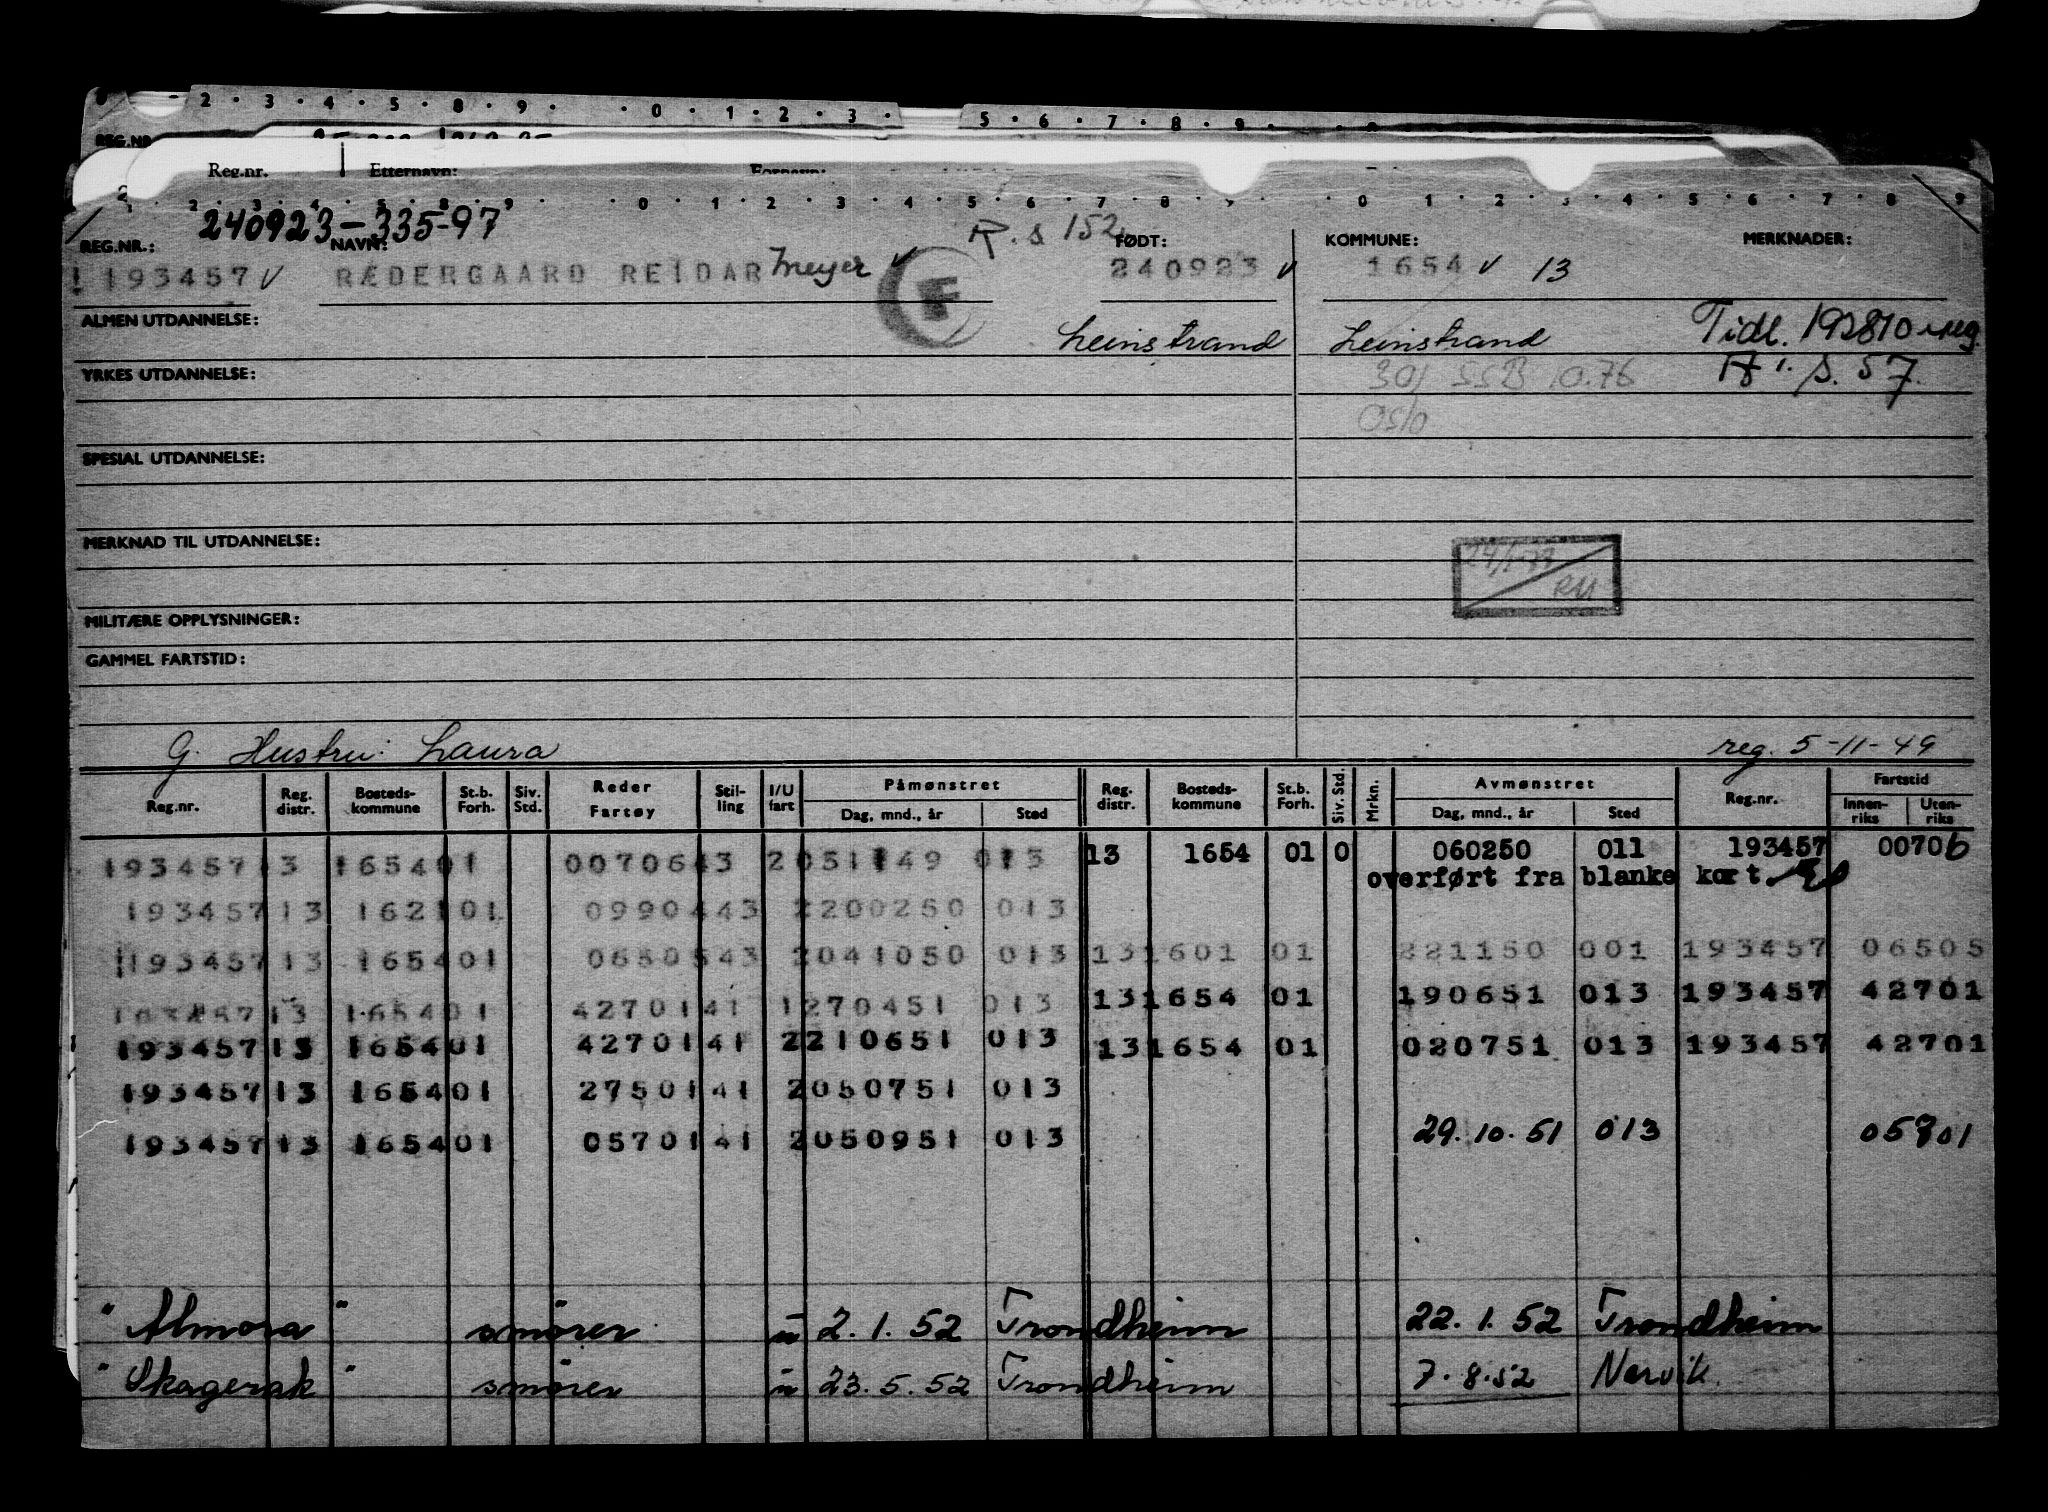 2 · 3 · 4 · 5 · 8 · 9 · · 0 · 1 · 2 · 3 · 5 · 6 · 7 · 8 · 9
REG.NR
Reg.nr. Etternavn: Fornavn:
0 1 2 3 4 5 6 7 8 0 1 2 3 4 5 6 7 8 9
240923-335-97 R. s 152
REG.NR.: NAVN: FØDT: KOMMUNE: MERKNADER:
! 193457 v RÆDERGAARD REIDAR Meyer v F 240923 v 1654 v 13
ALMEN UTDANNELSE: Leinstrand Leinstrand Tidl. 192870 i reg.
YRKES UTDANNELSE: 301 SSB 10.76 A i. s. 57.
Oslo
SPESIAL UTDANNELSE:
MERKNAD TIL UTDANNELSE:
RM
MILITÆRE OPPLYSNINGER:
GAMMEL FARTSTID:
G. Hustru: Laura reg. 5-11-49
Reg.nr. Reg. distr. Bosteds-kommune St.b. Forh. Siv. Std. Reder Fartøy Stil-ling I/U fart Påmønstret Dag, mnd., år Sted Reg. distr. Bosteds-kommune St.b. Forh. Siv. Std. Mrkn. Avmønstret Dag, mnd., år Sted Reg.nr. Fartstid Innen-riks Uten-riks
193457 13 1654 01 00706 43 2 051149 013 13 1654 01 0 060250 011 193457 00706
overført fra blanke kort
193457 13 1621 01 09904 43 2 200250 013
!193457 13 1654 01 06505 43 2 041050 013 13 1601 01 221150 001 193457 06505
193457 13 1654 01 42701 41 1 270451 013 13 1654 01 190651 013 193457 42701
193457 13 1654 01 42701 41 2 210651 013 13 1654 01 020751 013 193457 42701
193457 13 1654 01 27501 41 2 050751 013
193457 13 1654 01 05701 41 2 050951 013 29.10.51 013 05701
" Almora " smører u 2.1.52 Trondheim 22.1.52 Trondheim
" Skagerak " smører u 23.5.52 Trondheim 7.8.52 Narvik.